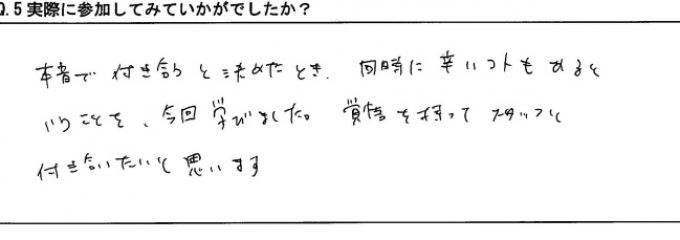 Q.5 実際に参加してみていかがでしたか？
本音で 付き合う と 決めたとき、同時に 辛いコトもあると
いうことを、今回 学びました。 覚悟を持って スタッフと
付き合いたいと 思います